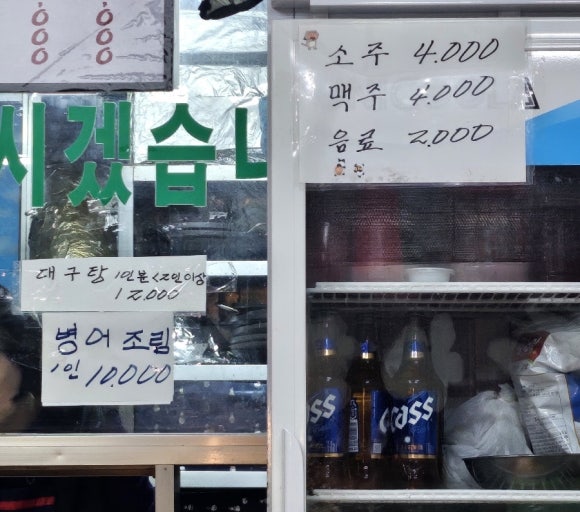 000
000
시겠습니
대구탕 1인분 <2인이상>
12,000
병어조림
1인 10,000
소주 4.000
맥주 4.000
음료 2.000
cass
cass